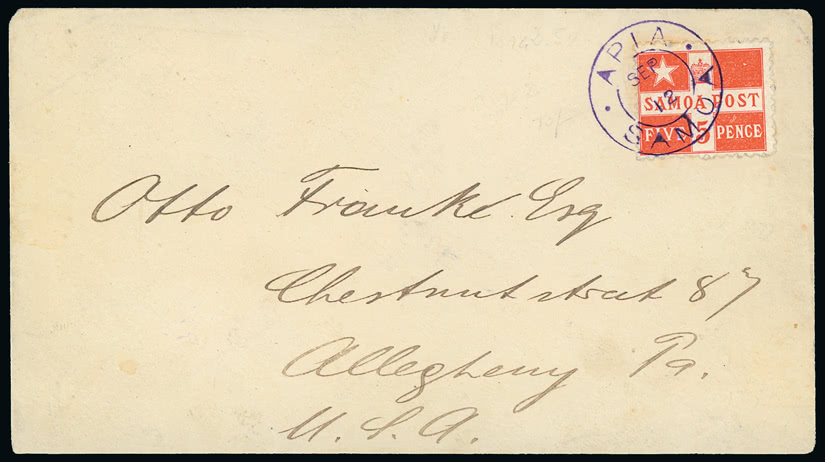 APIA
SEP
12
SAMOA
SAMOA POST
FIVE 5 PENCE
Otto Franke Esq
Chestnut street 87
Allegheny Pa.
U. S. A.